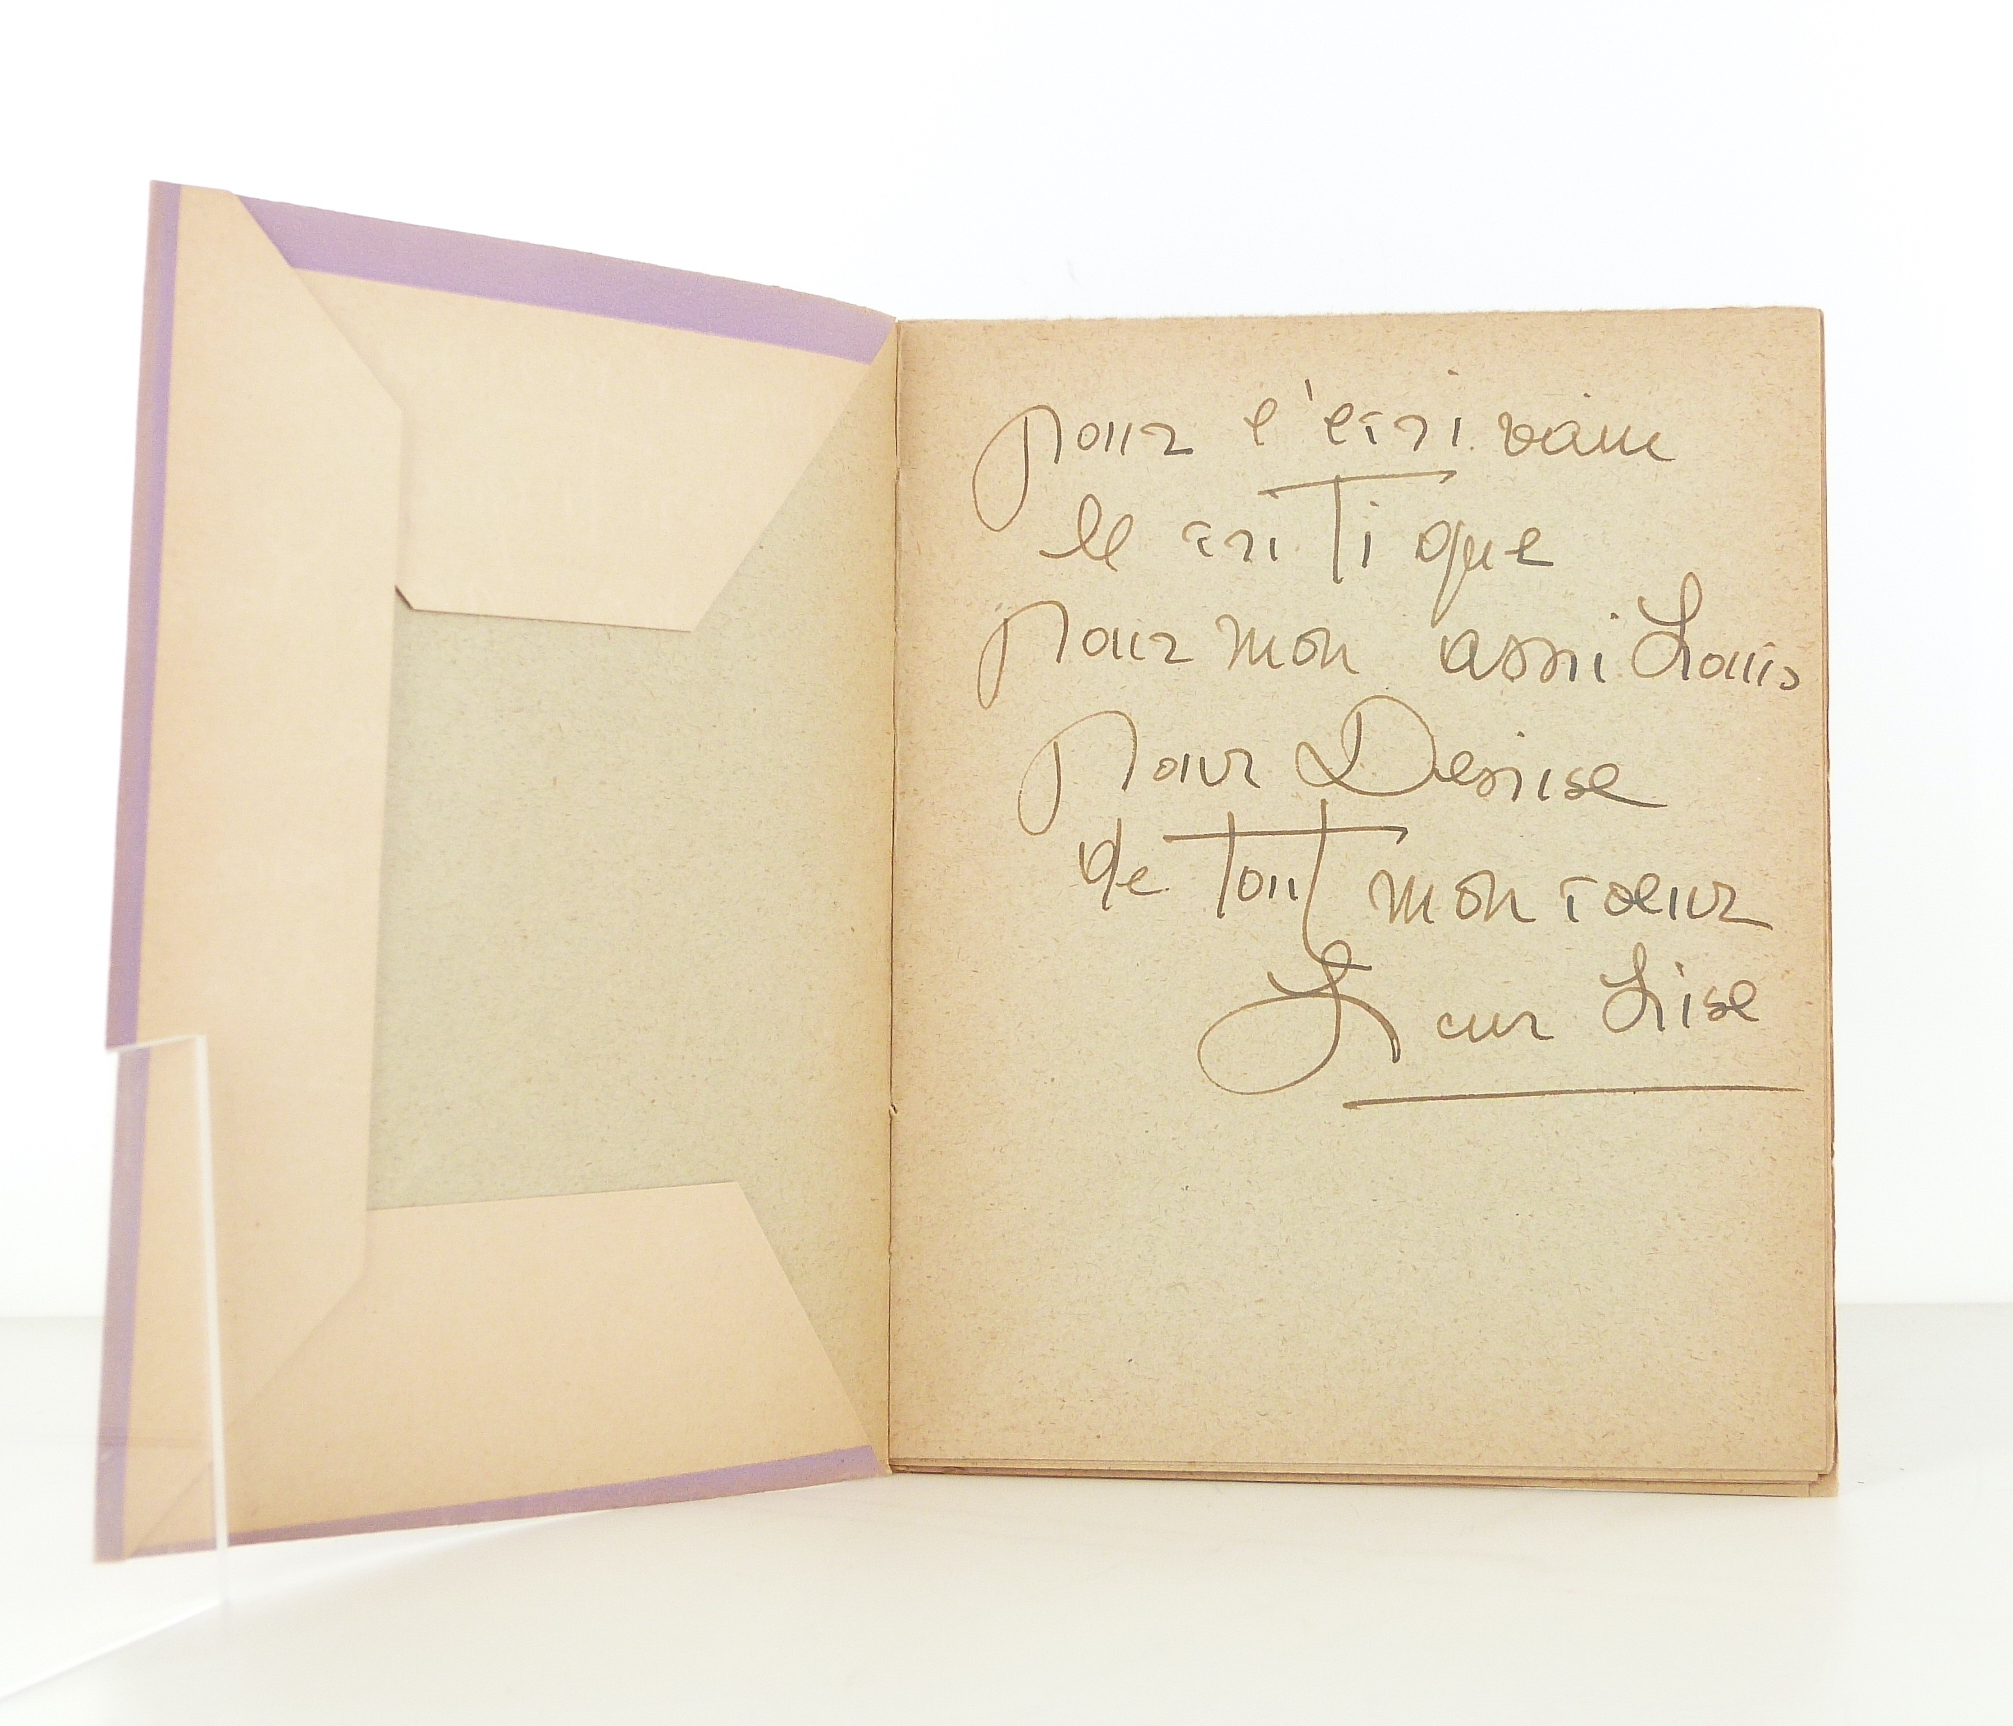 pour l'écrivain
le critique
pour mon ami Louis
pour Denise
de tout mon cœur
Leur Lise